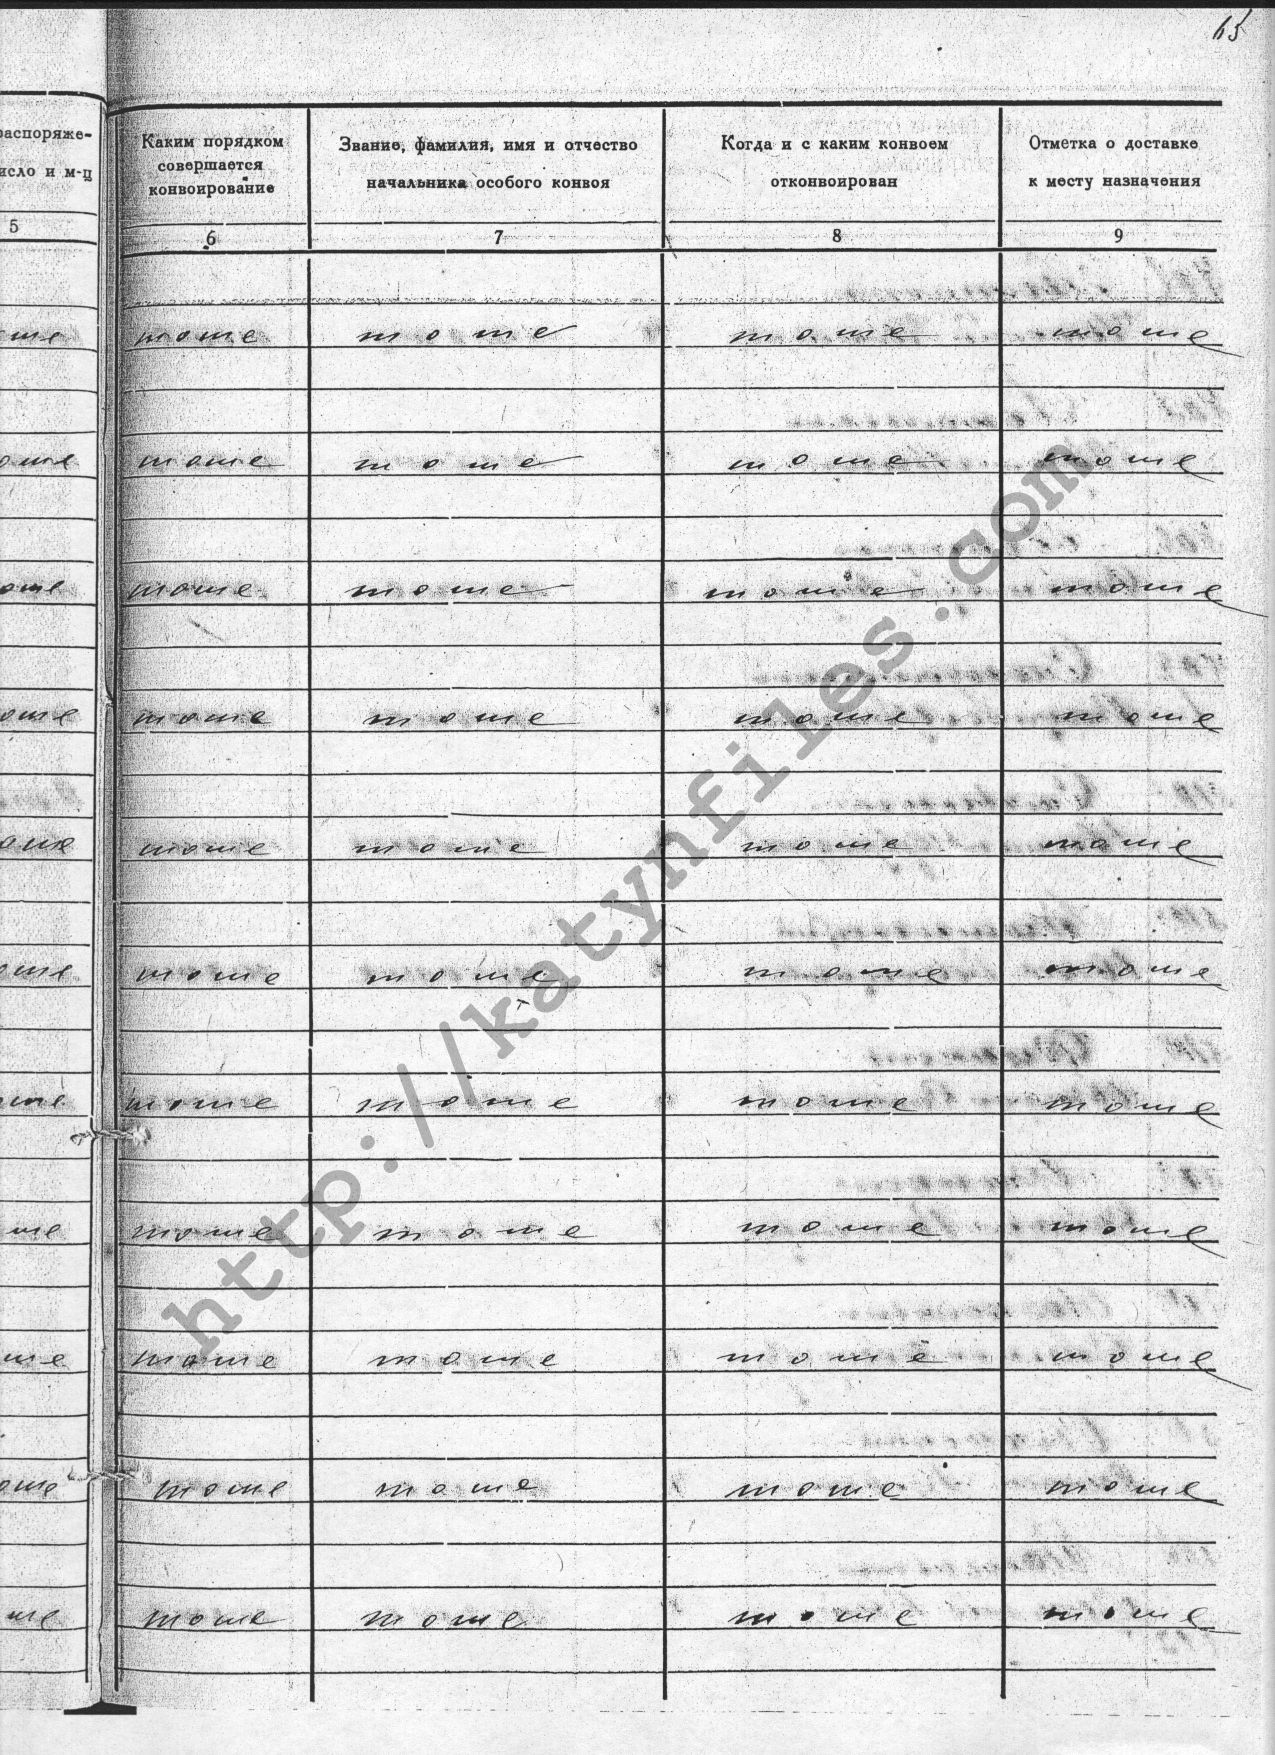 65
распоряже-
исло и м-ц
5
Каким порядком
совершается
конвоирование
6
Звание, фамилия, имя и отчество
начальника особого конвоя
7
Когда и с каким конвоем
отконвоирован
8
Отметка о доставке
к месту назначения
9
тоше тоше тоше тоше
оше тоше тоше тоше тоше
оше тоше тоше тоше тоше
оше тоше тоше тоше тоше
оше тоше тоше тоше тоше
оше тоше тоше тоше тоше
тоше тоше тоше тоше
ше тоше тоше тоше тоше
ше тоше тоше тоше тоше
оше тоше тоше тоше тоше
ше тоше тоше тоше тоше
http://katynfiles.com